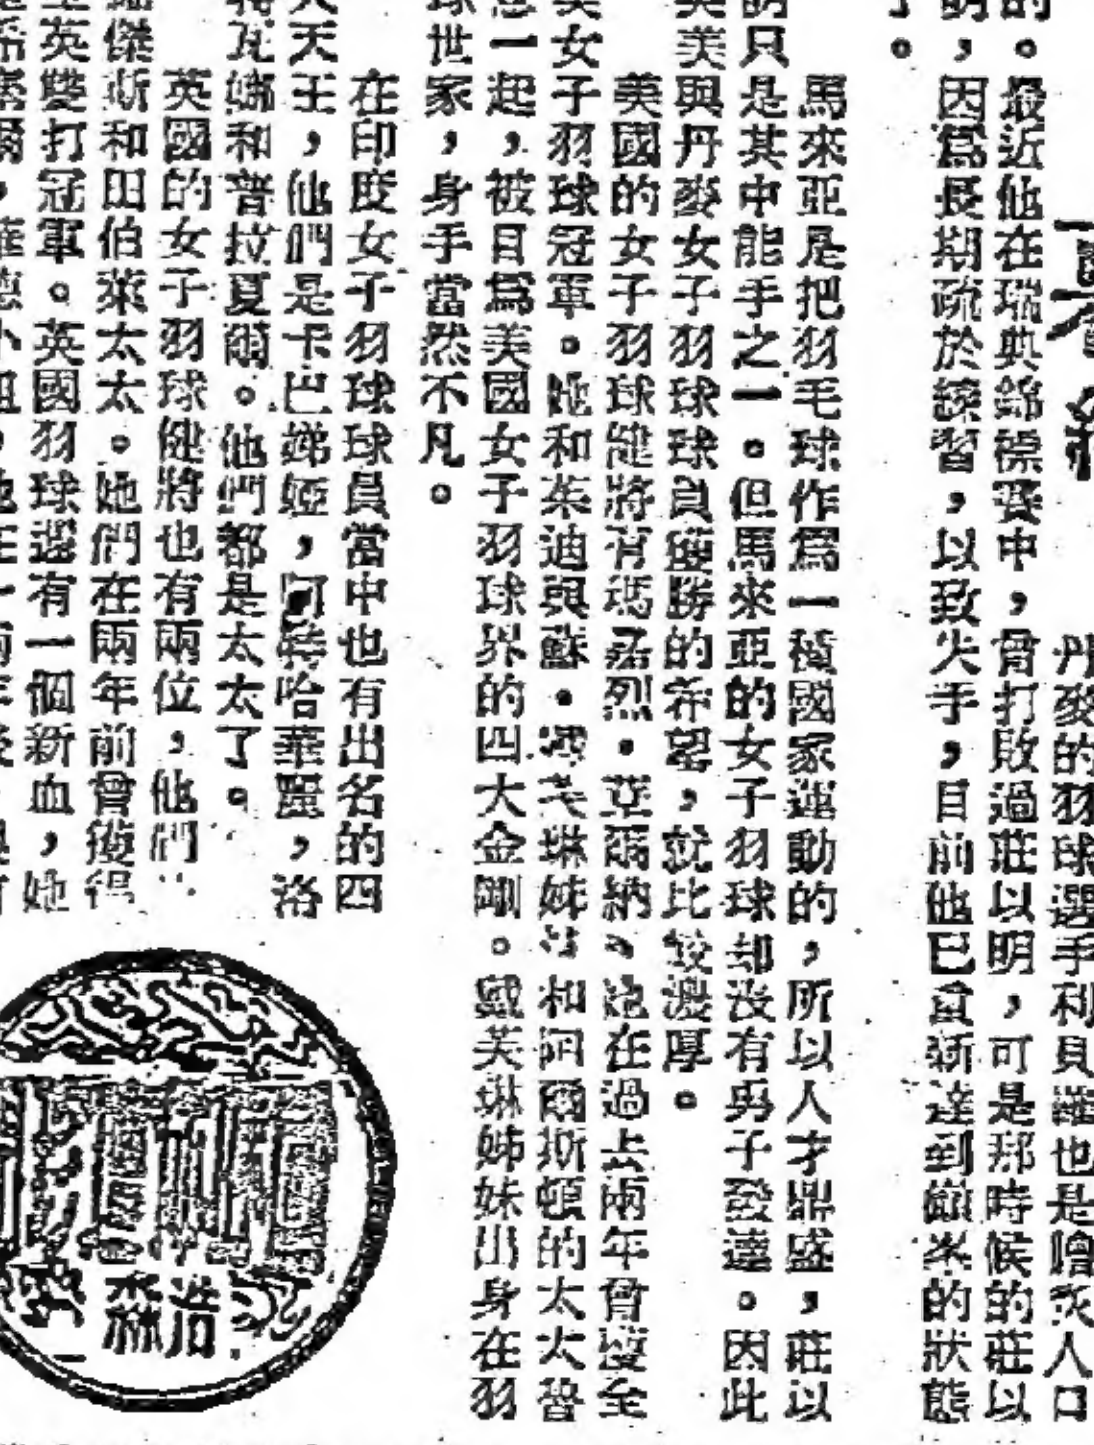 丹麥的羽球選手利貝羅也是膾炙人口
的。最近他在瑞典錦標賽中，曾打敗過莊以明，可是那時候的莊以
明，因爲長期疏於練習，以致失手，目前他已重新達到巔峯的狀態
了。
馬來亞是把羽毛球作爲一種國家運動的，所以人才鼎盛，莊以
明只是其中能手之一。但馬來亞的女子羽球却沒有男子發達。因此
美美與丹麥女子羽球球員獲勝的希望，就比較濃厚。
美國的女子羽球健將有瑪烈·亞爾納、她在過去兩年曾獲全
美女子羽球冠軍。她和茱迪與蘇·戴芙琳姊妹和阿爾斯頓的太太曾
一起，被目爲美國女子羽球界的四大金剛。戴芙琳姊妹出身在羽
球世家，身手當然不凡。
在印度女子羽球球員當中也有出名的四
大天王，他們是卡巴娣婭，阿特哈華麗，洛
瓦娜和普拉夏爾。他們都是太太了。
英國的女子羽球健將也有兩位，他們
傑斯和田伯萊太太。她們在兩年前曾獲得
全英雙打冠軍。英國羽球還有一個新血，她